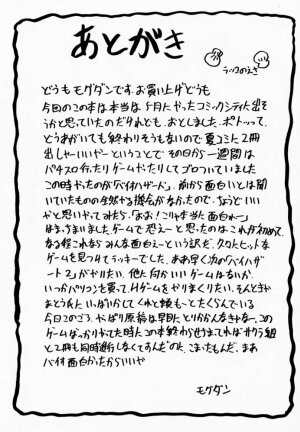 あとがき
どうもモグダンです。お買い上げどうも
今回のこの本は本当は5月にやったコミックシティに出そ
うかと思っていたのだけれども、おとしました。ポトッって。
どうあがいても終わりそうもないので夏コミに2冊
出しゃーいいやーということで その日から一週間は
パチスロ行ったりゲームやったりしてプラプラしていました
この時やったのが「バイオハザード」。前から面白いとは聞
いていたものの全然やる機会がなかったので、ちょうどいい
かと思いやってみたら、「おお!こりゃ本当に面白れー」
はまっちまいました。ゲームで恐えーと思ったのはこれが初めて。
なる程これなら みんな面白えーという訳だ。久々にヒットな
ゲームを見つけてラッキーでした。ああ早く次の「バイオハザ
ード2」がやりたい。他に何かいいゲームはないか。
いっかパソコンを買って、Hゲームをやりまくりたい。そんときゃ
おとうに いっぱいかしてくれと頼もーとたくらんでいる
今日このごろ。やっぱり原稿は早目にとりかかんなきゃなー。この
ゲームばっかりやってた時にこの本終わらせてればサクラ組
と2冊も同時進行しなくてすんだのに。こまったもんだ。まあ
バイオ面白かったからいいや
モグダン